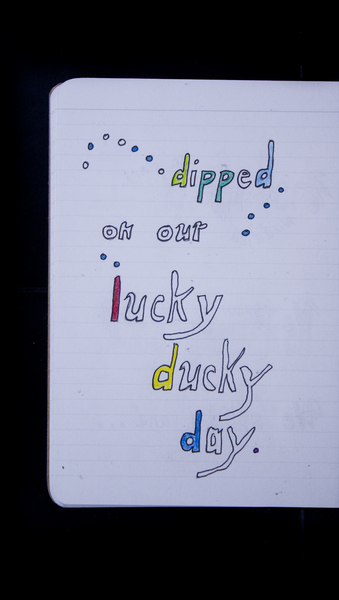 dipped
on our
lucky
ducky
day.